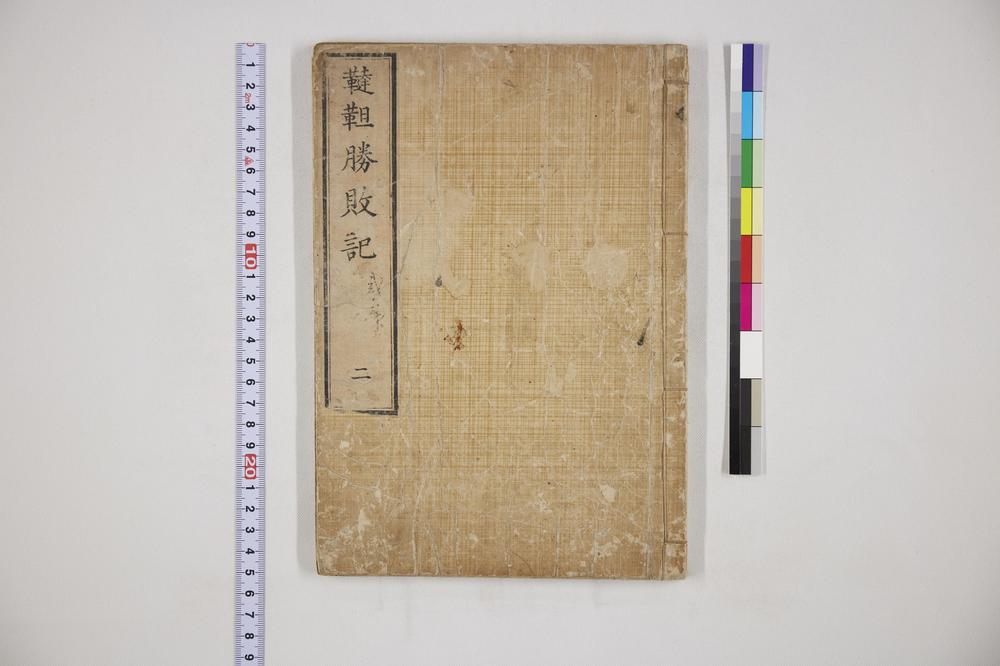 韃靼勝敗記
二
1
2
2m
3
4
5
6
7
8
9
10
1
2
3
4
5
6
7
8
9
20
1
2
3
4
5
6
7
8
9